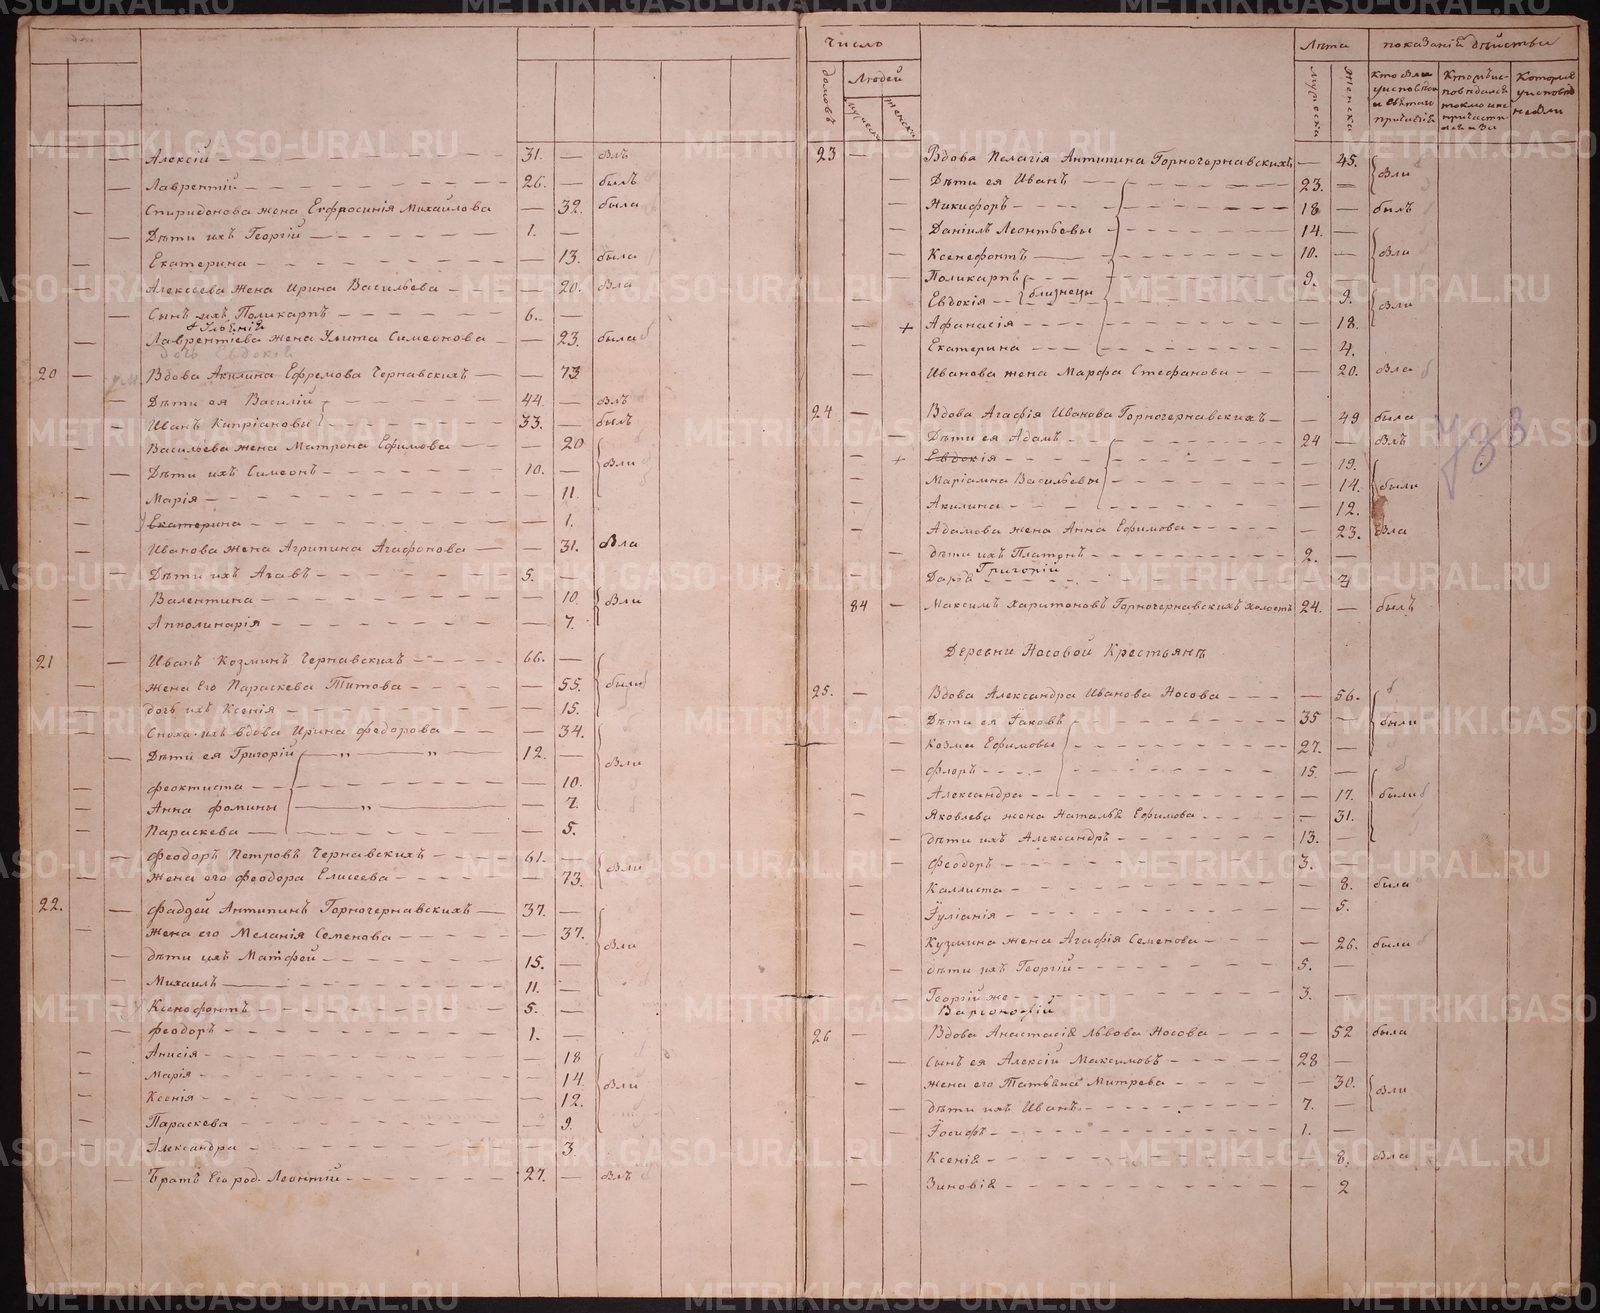 Алексій 31. — блъ
Лаврентій 26. — былъ
Спиридонова жена Евфросинія Михайлова — 32. была
Дѣти ихъ Георгій 1. —
Екатерина — 13. была
Алексѣева жена Ирина Васильева — 20. бла
Сынъ ихъ Поликарпъ 6. —
Лаврентіева жена Улита Симеонова — 23. была
дочь Евдокія
20 Вдова Акилина Ефремова Чернавскихъ — 73
Дѣти ея Василій 44. — блъ
Иванъ Кипріановы 33. — былъ
Васильева жена Матрона Ефимова 20
Дѣти ихъ Симеонъ 10. — бли
Марія — 11.
Екатерина — 1.
Иванова жена Агрипина Агафонова — 31. бла
Дѣти ихъ Агавъ 5. —
Валентина — 10. бли
Апполинарія — 7.
21 Иванъ Козминъ Чернавскихъ 66. —
жена Его Параскева Титова — 55. были
дочь ихъ Ксенія — 15.
Сноха ихъ вдова Ирина Федорова — 34.
Дѣти ея Григорій 12. — бли
Феоктиста — 10.
Анна Фомины — 7.
Параскева — 5.
Феодоръ Петровъ Чернавскихъ 61. —
жена его Феодора Елисеева — 73. бли
22. Фаддей Антипинъ Горночернавскихъ 37. —
жена его Меланія Семенова — 37. бли
дѣти ихъ Матфей 15. —
Михаилъ 11. —
Ксенофонтъ 5. —
Феодоръ 1. —
Анисія — 18
Марія — 14. бли
Ксенія — 12.
Параскева — 9.
Александра — 3
Братъ Его род. Леонтій 27. — блъ
Число
домовъ
Людей
мужеска
женска
Лѣта
мужеска
женска
показаній дѣйствы
Кто были у исповѣди и святаго причастія
Которые у исповѣди не были
23 — Вдова Пелагія Антипина Горночернавскихъ — 45. бли
Дѣти ея Иванъ 23. —
Никифоръ 18 — былъ
Даніилъ Леонтьевы 14. —
Ксенефонтъ 10. — бли
Поликарпъ 9.
Евдокія близнецы — 9. бли
+ Афанасія — 18.
Екатерина — 4.
Иванова жена Марфа Стефанови — 20. бла
24 — Вдова Агафія Иванова Горночернавскихъ — 49 была
Дѣти ея Адамъ 24 — блъ
+ Евдокія — 19.
Маріамна Васильевы — 14. были
Акилина — 12.
Адамова жена Анна Ефимова — 23. бла
дѣти ихъ Платонъ 2. —
Григорій
Дарія — 4
84 — Максимъ Харитоновъ Горночернавскихъ холостъ 24. — былъ
Деревни Носовой Крестьянъ
25. — Вдова Александра Иванова Носова — 56.
Дѣти ея Іаковъ 35 — были
Козма Ефимовы 27. —
Флоръ 15. —
Александра — 17. были
Яковлева жена Наталья Ефимова — 31.
дѣти ихъ Александръ 13. —
Феодоръ 3. —
Каллиста — 8. была
Іуліанія — 5.
Кузмина жена Агафія Семенова — 26. была
дѣти ихъ Георгій 5. —
Георгій же 3. —
Варсонофій
26 — Вдова Анастасія Львова Носова — 52 была
Сынъ ея Алексій Максимовъ 28 —
жена его Татьяна Митрева — 30. бли
дѣти ихъ Иванъ 7. —
Іосифъ 1. —
Ксенія — 8. бла
Зиновія — 2
METRIKI.GASO-URAL.RU